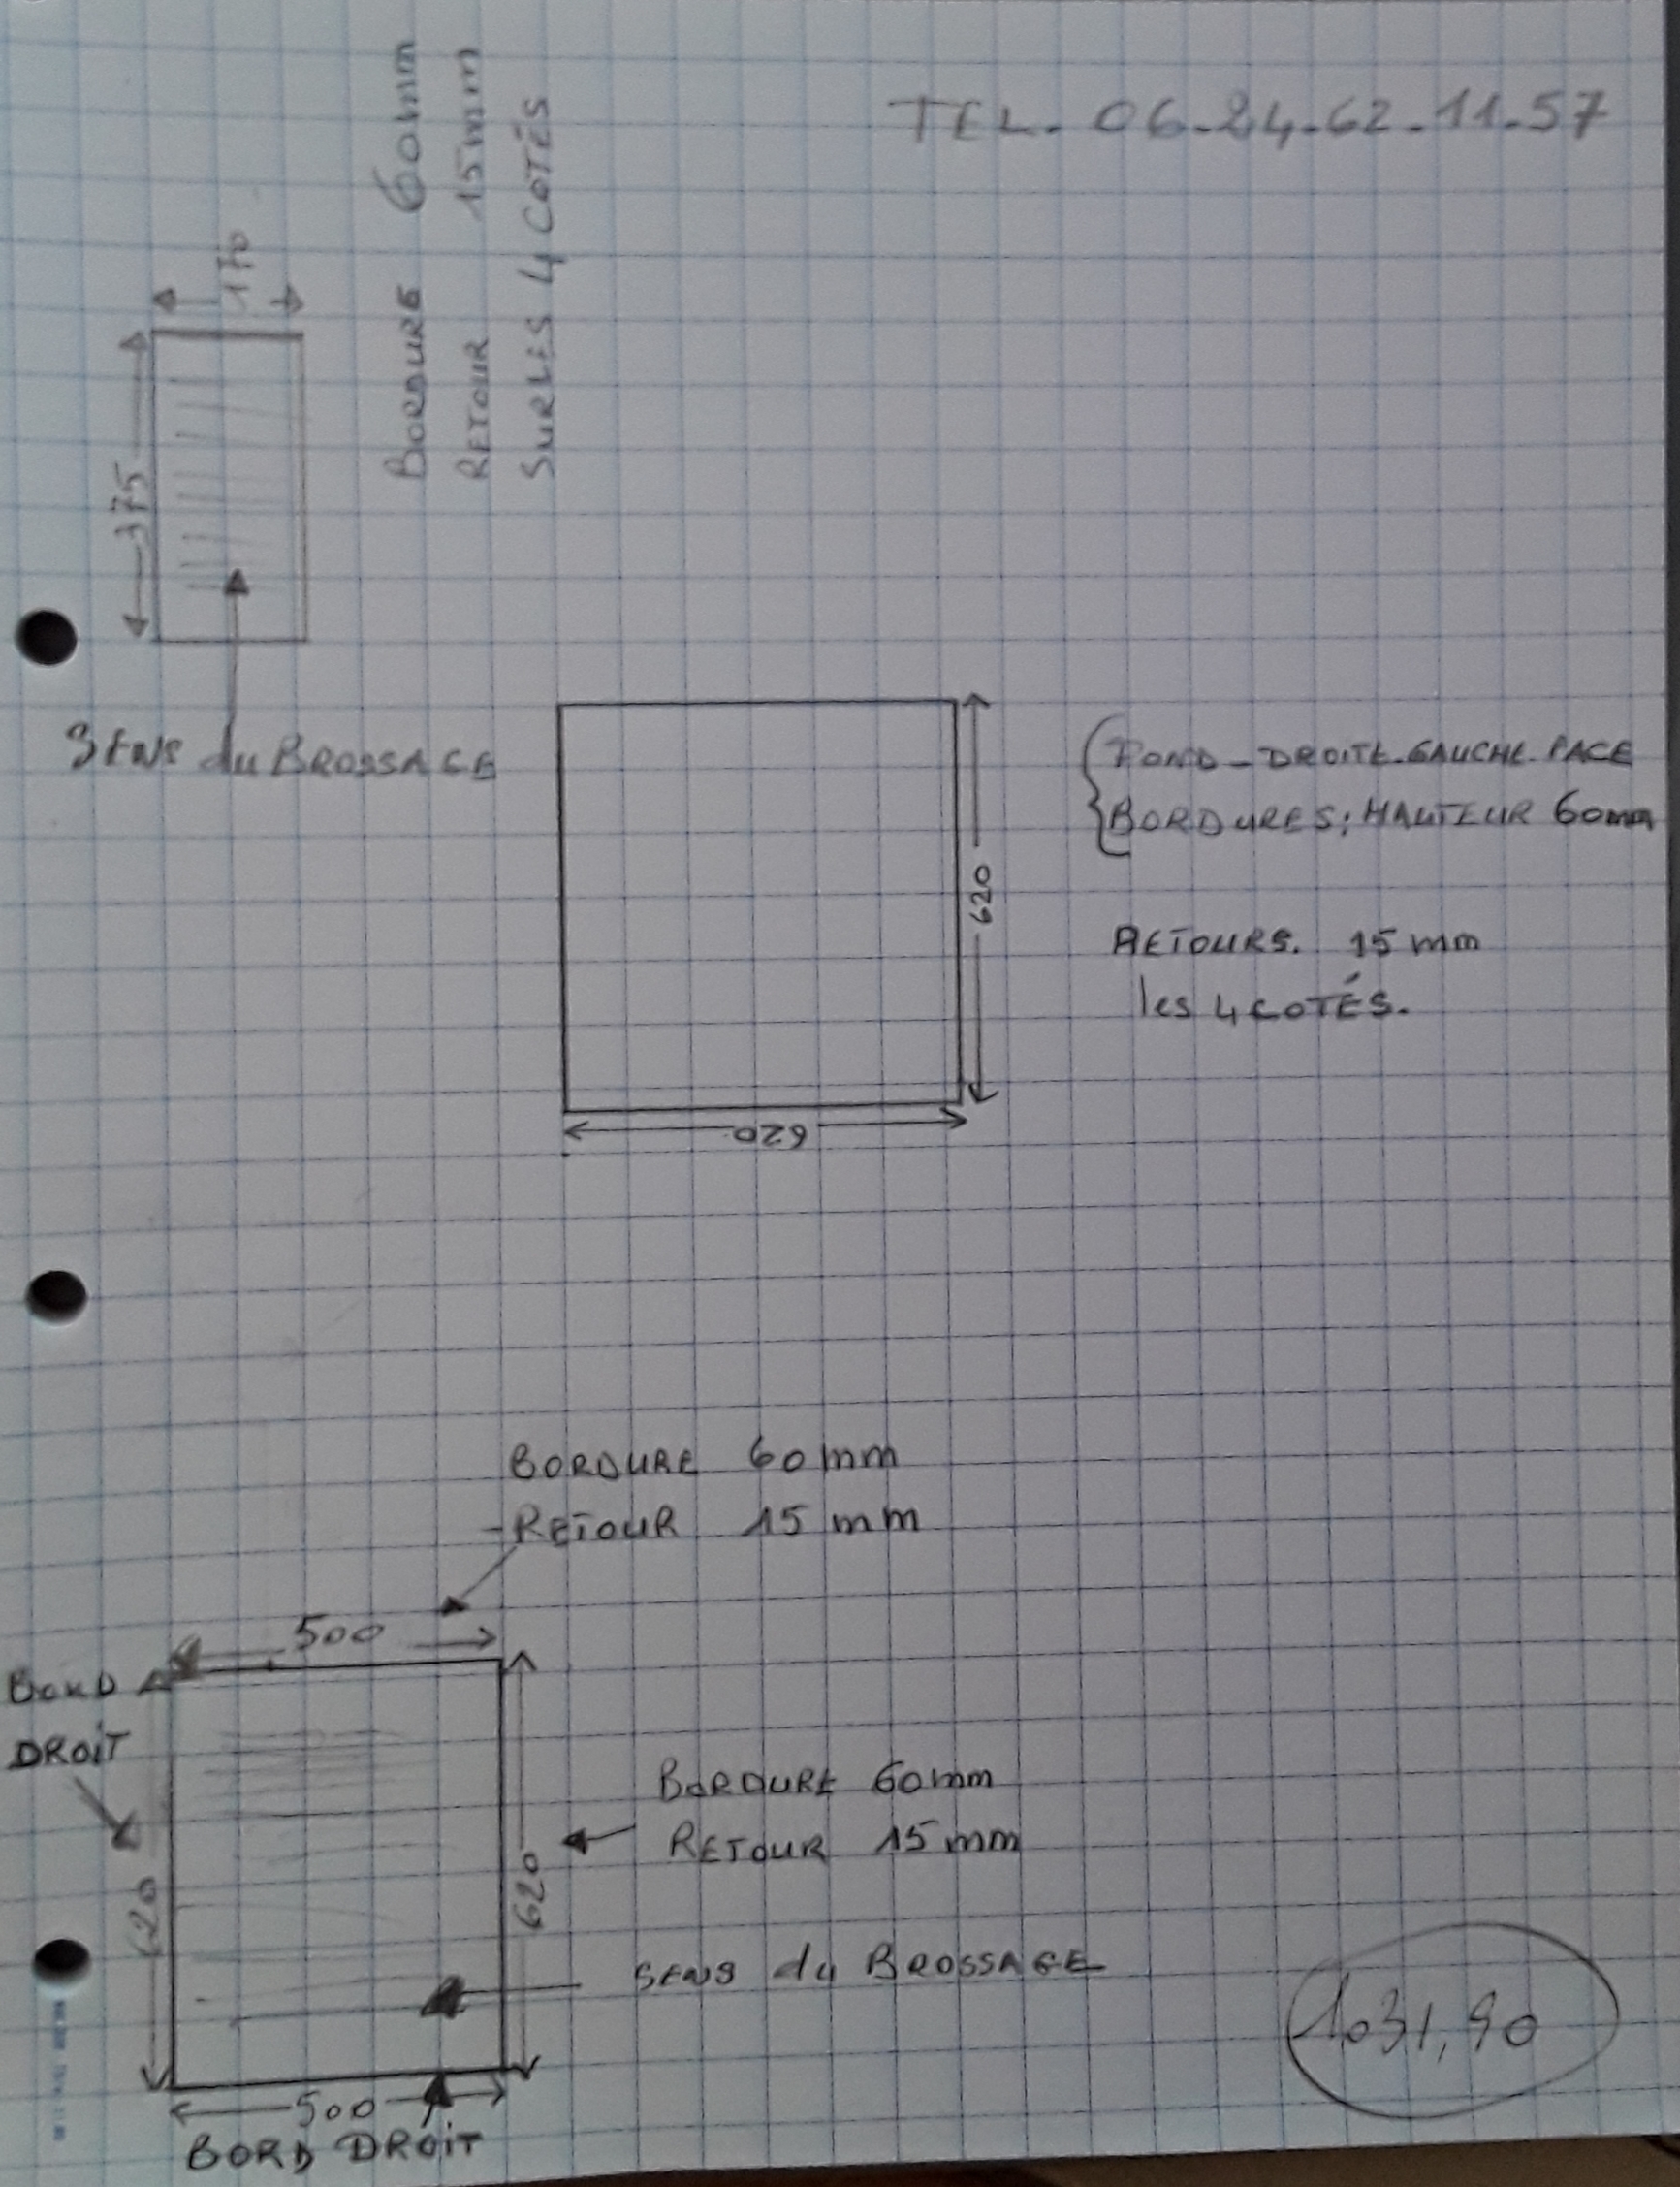 TEL. 06.24.62.11.57
BORDURE 60mm
RETOUR 15mm
SUR LES 4 COTÉS
170
375
SENS du BROSSAGE
FOND - DROITE. GAUCHE. FACE
BORDURES: HAUTEUR 60mm
RETOURS. 15 mm
les 4 COTÉS.
620
620
BORDURE 60 mm
-RETOUR 15 mm
500
BORD
DROIT
BORDURE 60mm
RETOUR 15 mm
620
620
SENS du BROSSAGE
500
BORD DROIT
1031,90